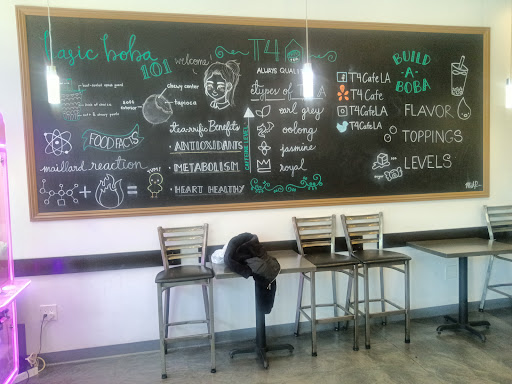 basic boba
101
welcome!
chewy center
soft exterior
tapioca
FOOD FACTS
maillard reaction
+
=
YUM!
tea-rrific Benefits
• ANTIOXIDANTS
• METABOLISM
• HEART HEALTHY
T4
ALWAYS QUALI
types of
CAFFEINE LEVEL
earl grey
oolong
jasmine
royal
T4CafeLA
T4 Cafe
T4CafeLA
T4CafeLA
BUILD
-A-
BOBA
FLAVOR
TOPPINGS
LEVELS